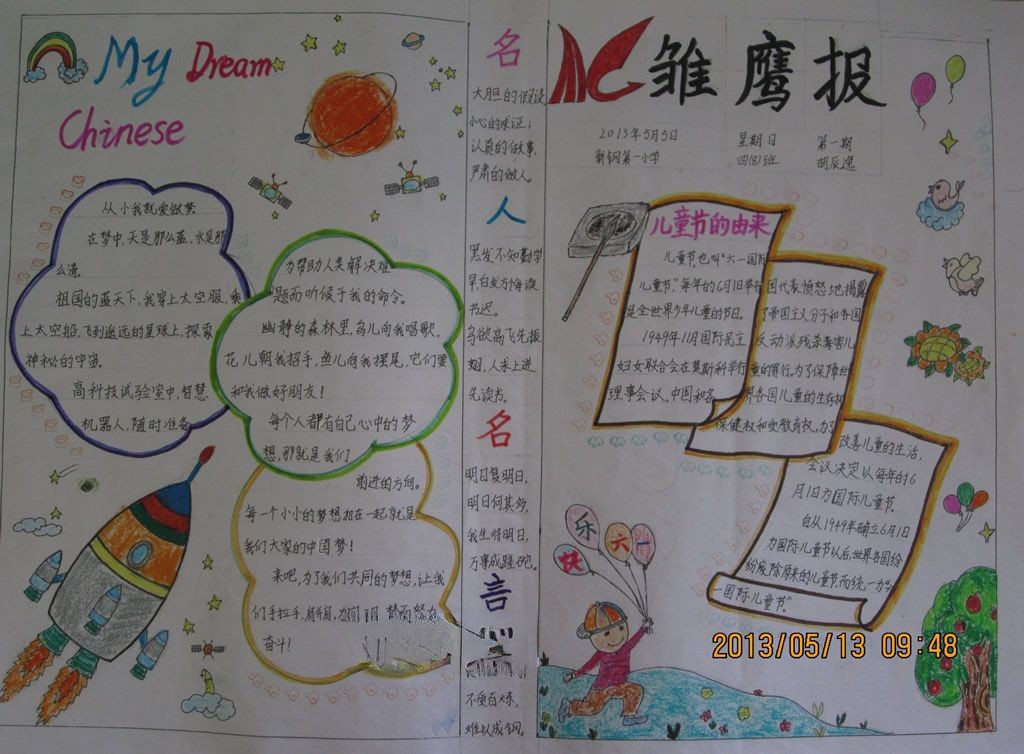 My Dream
Chinese
从小我就爱做梦
在梦中,天是那么蓝,水是那
么清。
祖国的蓝天下,我穿上太空服,乘
上太空船,飞到遥远的星球上,探索
神秘的宇宙。
高科技试验室中,智慧
机器人,随时准备
为帮助人类解决难
题而听候于我的命令。
幽静的森林里,鸟儿向我唱歌,
花儿朝我招手,鱼儿向我摆尾,它们要
和我做好朋友!
每个人都有自己心中的梦
想,那就是我们
前进的方向。
每一个小小的梦想相在一起就是
我们大家的中国梦!
来吧,为了我们共同的梦想,让我
们手拉手,肩并肩,为
奋斗!
名
大胆的假设
小心的求证;
认真的做事,
严肃的做人。
人
黑发不知勤学
早白发方悔读
书迟。
鸟欲高飞先振
翅,人求上进
先读书。
名
明日复明日,
明日何其多,
我生待明日,
万事成蹉跎。
言
不受百炼,
难以成钢。
雏鹰报
2013年5月5日 星期日 第一期
新钢第一小学 四(8)班 胡辰逸
儿童节的由来
儿童节,也叫“六一国际
儿童节”,每年的6月1日举行
是全世界少年儿童的节日。
1949年11月国际民主
妇女联合会在莫斯科举行
理事会议,中国和各
国代表愤怒地揭露
了帝国主义分子和各国
反动派残杀毒害儿
童的罪行,为了保障世
界各国儿童的生存权
保健权和受教育权,为了
改善儿童的生活,
会议决定以每年的6
月1日为国际儿童节。
自从1949年确立6月1日
为国际儿童节以后,世界各国纷
纷废除原来的儿童节,而统一为“六
一国际儿童节”。
快乐六一
2013/05/13 09:48